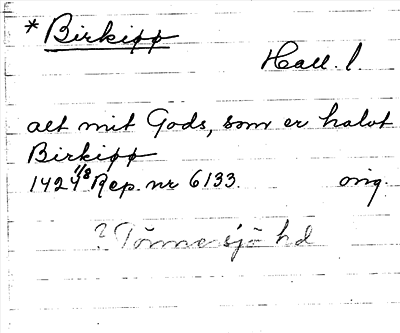 * Birkiøø
Hall. l
alt mit Gods, som er halvt
Birkiøø
1424 1/8 Rep. nr 6133. orig.
? Tönnersjö hd